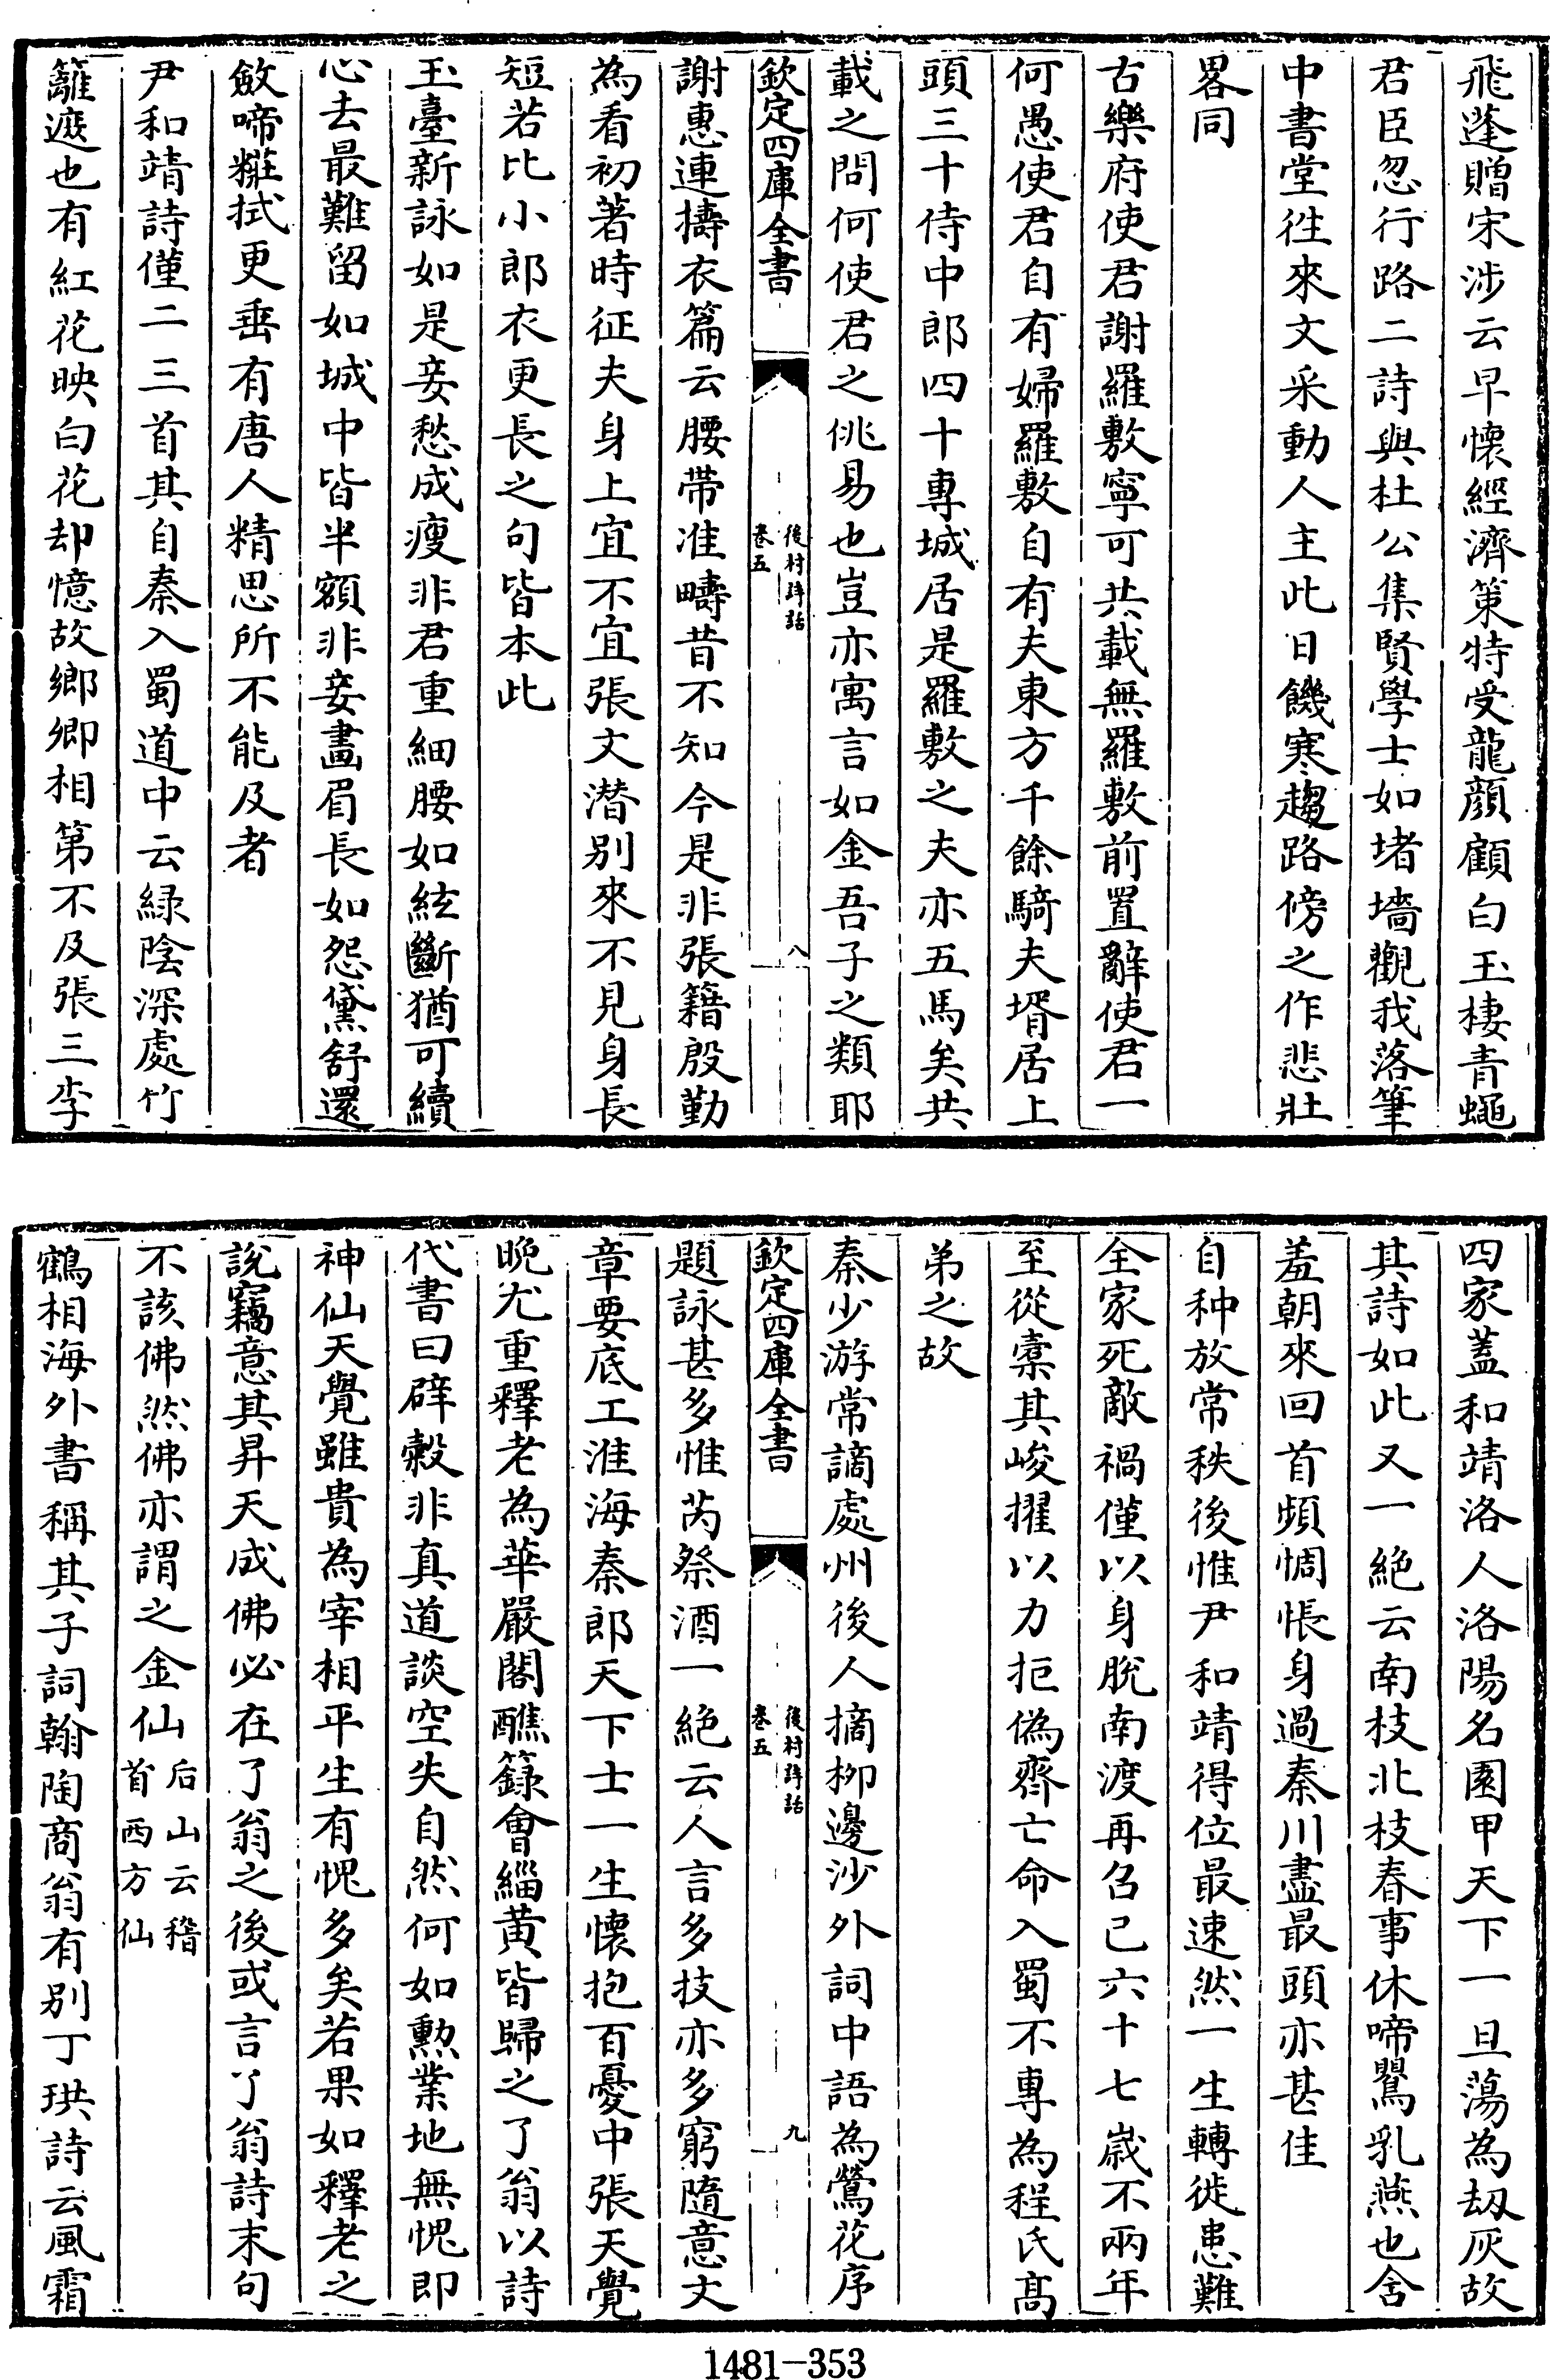 飛蓬贈宋涉云早懷經濟策特受龍顔顧白玉棲青蠅
君臣忽行路二詩與杜公集賢學士如堵墻觀我落筆
中書堂徃來文采動人主此日饑寒趨路傍之作悲壯
畧同
古樂府使君謝羅敷寧可共載無羅敷前置辭使君一
何愚使君自有婦羅敷自有夫東方千餘騎夫壻居上
頭三十侍中郎四十專城居是羅敷之夫亦五馬矣共
載之問何使君之佻易也豈亦寓言如金吾子之類耶
欽定四庫全書
後村詩話
卷五
八
謝惠連擣衣篇云腰帶准疇昔不知今是非張籍殷勤
為看初著時征夫身上宜不宜張文潜別來不見身長
短若比小郎衣更長之句皆本此
玉臺新詠如是妾愁成瘦非君重細腰如絃斷猶可續
心去最難留如城中皆半額非妾畫眉長如怨黛舒還
斂啼粧拭更垂有唐人精思所不能及者
尹和靖詩僅二三首其自秦入蜀道中云緑陰深處竹
籬遮也有紅花映白花却憶故鄉卿相第不及張三李
四家蓋和靖洛人洛陽名園甲天下一旦蕩為刼灰故
其詩如此又一絶云南枝北枝春事休啼鸎乳燕也含
羞朝來回首頻惆悵身過秦川盡最頭亦甚佳
自种放常秩後惟尹和靖得位最速然一生轉徙患難
全家死敵禍僅以身脫南渡再召已六十七歲不兩年
至從橐其峻擢以力拒偽齊亡命入蜀不專為程氏髙
弟之故
秦少游常謫處州後人摘柳邊沙外詞中語為鶯花序
欽定四庫全書
後村詩話
卷五
九
題詠甚多惟芮祭酒一絶云人言多技亦多窮隨意文
章要底工淮海秦郎天下士一生懷抱百憂中張天覺
晚尤重釋老為華嚴閣醮籙會緇黄皆歸之了翁以詩
代書曰辟榖非真道談空失自然何如勲業地無愧即
神仙天覺雖貴為宰相平生有愧多矣若果如釋老之
說竊意其昇天成佛必在了翁之後或言了翁詩末句
不該佛然佛亦謂之金仙后山云稽
首西方仙
鶴相海外書稱其子詞翰陶商翁有別丁珙詩云風霜
1481-353